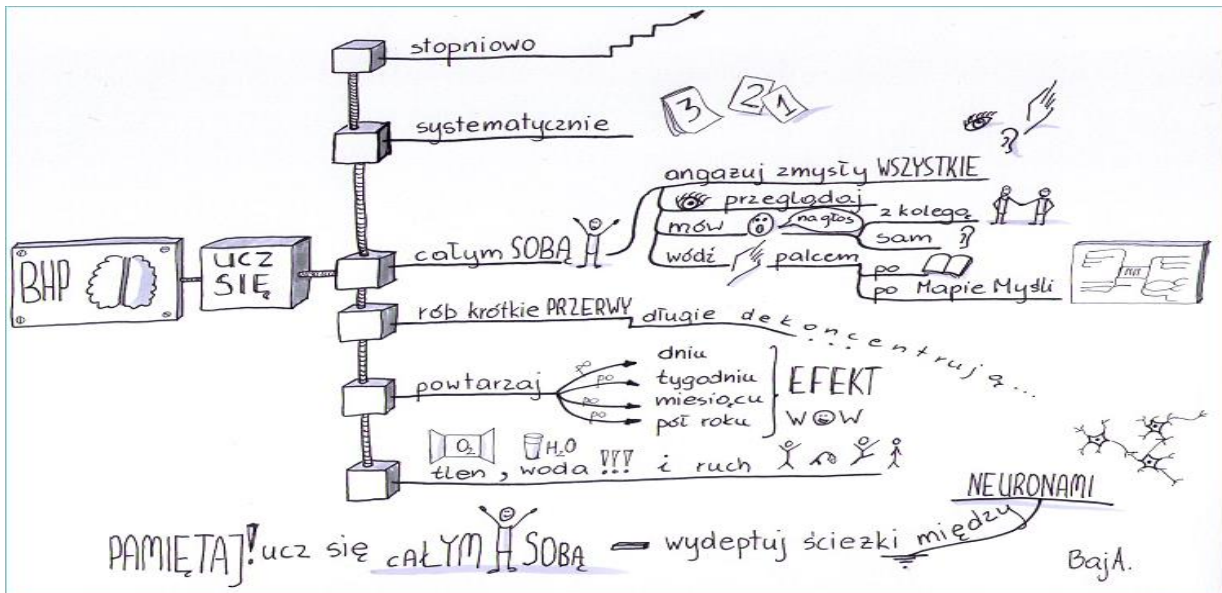 BHP
UCZ
SIĘ
stopniowo
systematycznie
3 2 1
całym SOBĄ
angażuj zmysły WSZYSTKIE
przeglądaj
mów na głos
z kolegą
sam
wódź palcem
po
po Mapie Myśli
rób krótkie PRZERWY długie dekoncentrują...
powtarzaj
po dniu
po tygodniu
po miesiącu
po pół roku
EFEKT
WOW
O₂ H₂O
tlen, woda!!! i ruch
PAMIĘTAJ! ucz się CAŁYM SOBĄ – wydeptuj ścieżki między
NEURONAMI
BajA.